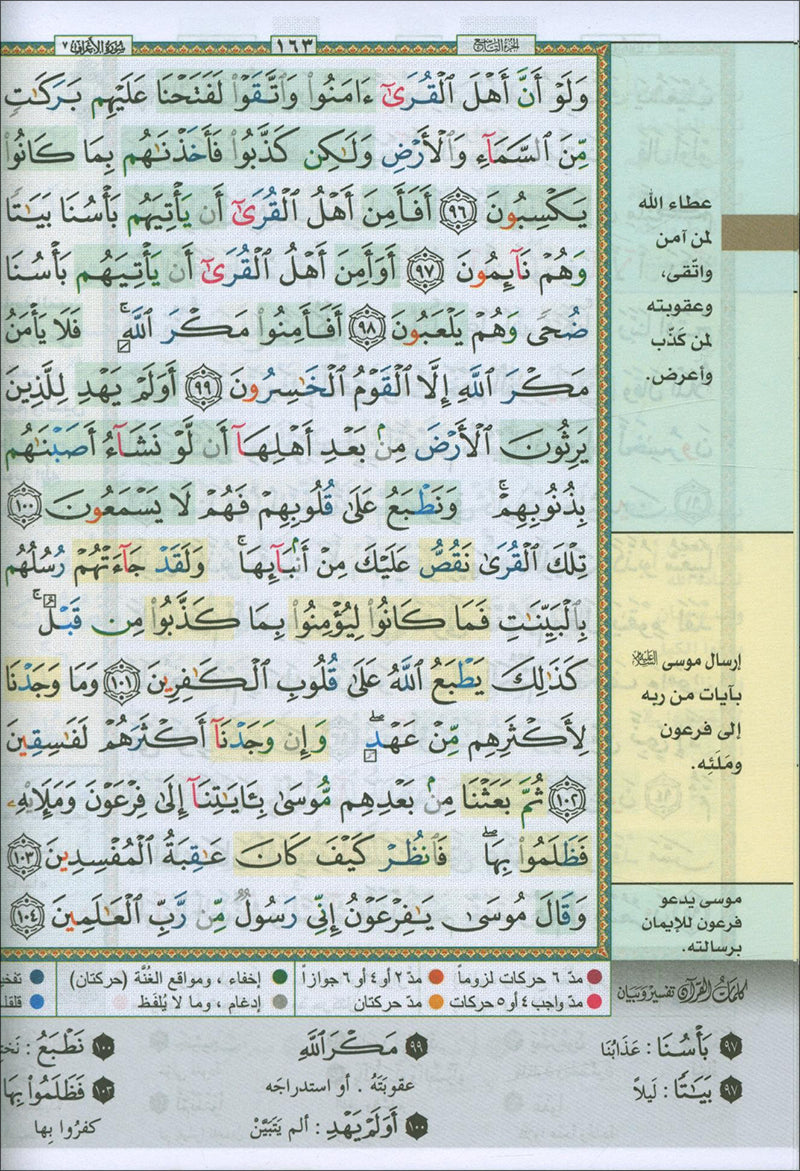 سُورَةُ الأَعْرَافِ ٧
١٦٣
الجزء التاسع
وَلَوۡ أَنَّ أَهۡلَ ٱلۡقُرَىٰٓ ءَامَنُوا۟ وَٱتَّقَوۡا۟ لَفَتَحۡنَا عَلَيۡهِم بَرَكَٰتٖ
مِّنَ ٱلسَّمَآءِ وَٱلۡأَرۡضِ وَلَٰكِن كَذَّبُوا۟ فَأَخَذۡنَٰهُم بِمَا كَانُوا۟
يَكۡسِبُونَ ٩٦ أَفَأَمِنَ أَهۡلُ ٱلۡقُرَىٰٓ أَن يَأۡتِيَهُم بَأۡسُنَا بَيَٰتٗا
وَهُمۡ نَآئِمُونَ ٩٧ أَوَأَمِنَ أَهۡلُ ٱلۡقُرَىٰٓ أَن يَأۡتِيَهُم بَأۡسُنَا
ضُحٗى وَهُمۡ يَلۡعَبُونَ ٩٨ أَفَأَمِنُوا۟ مَكۡرَ ٱللَّهِۚ فَلَا يَأۡمَنُ
مَكۡرَ ٱللَّهِ إِلَّا ٱلۡقَوۡمُ ٱلۡخَٰسِرُونَ ٩٩ أَوَلَمۡ يَهۡدِ لِلَّذِينَ
يَرِثُونَ ٱلۡأَرۡضَ مِنۢ بَعۡدِ أَهۡلِهَآ أَن لَّوۡ نَشَآءُ أَصَبۡنَٰهُم
بِذُنُوبِهِمۡۚ وَنَطۡبَعُ عَلَىٰ قُلُوبِهِمۡ فَهُمۡ لَا يَسۡمَعُونَ ١٠٠
تِلۡكَ ٱلۡقُرَىٰ نَقُصُّ عَلَيۡكَ مِنۡ أَنۢبَآئِهَاۚ وَلَقَدۡ جَآءَتۡهُمۡ رُسُلُهُم
بِٱلۡبَيِّنَٰتِ فَمَا كَانُوا۟ لِيُؤۡمِنُوا۟ بِمَا كَذَّبُوا۟ مِن قَبۡلُۚ
كَذَٰلِكَ يَطۡبَعُ ٱللَّهُ عَلَىٰ قُلُوبِ ٱلۡكَٰفِرِينَ ١٠١ وَمَا وَجَدۡنَا
لِأَكۡثَرِهِم مِّنۡ عَهۡدٖۖ وَإِن وَجَدۡنَآ أَكۡثَرَهُمۡ لَفَٰسِقِينَ
١٠٢ ثُمَّ بَعَثۡنَا مِنۢ بَعۡدِهِم مُّوسَىٰ بِـَٔايَٰتِنَآ إِلَىٰ فِرۡعَوۡنَ وَمَلَإِي۟هِۦ
فَظَلَمُوا۟ بِهَاۖ فَٱنظُرۡ كَيۡفَ كَانَ عَٰقِبَةُ ٱلۡمُفۡسِدِينَ ١٠٣
وَقَالَ مُوسَىٰ يَٰفِرۡعَوۡنُ إِنِّي رَسُولٞ مِّن رَّبِّ ٱلۡعَٰلَمِينَ ١٠٤
عطاء الله
لمن آمن
واتّقى،
وعقوبته
لمن كَذّب
وأعرض.
إرسال موسى عليه السلام
بآيات من ربه
إلى فرعون
ومَلَئِه.
موسى يدعو
فرعون للإيمان
برسالته.
مدّ ٦ حركات لزوماً مدّ ٢ أو ٤ أو ٦ جوازاً إخفاء ، ومواقع الغُنَّة (حركتان)
مدّ واجب ٤ أو ٥ حركات مدّ حركتان إدغام ، وما لا يُلفَظ
كلمات القرآن تفسير وبيان
٩٧ بَأۡسُنَا : عَذَابُنَا
٩٧ بَيَٰتٗا : لَيلاً
٩٩ مَكۡرَ ٱللَّهِ
عقوبَتَهُ . أو استدراجَه
١٠٠ أَوَلَمۡ يَهۡدِ : ألم يَتبَيَّنْ
١٠٠ نَطۡبَعُ :
١٠٣ فَظَلَمُوا۟ بِهَا
كفرُوا بِها